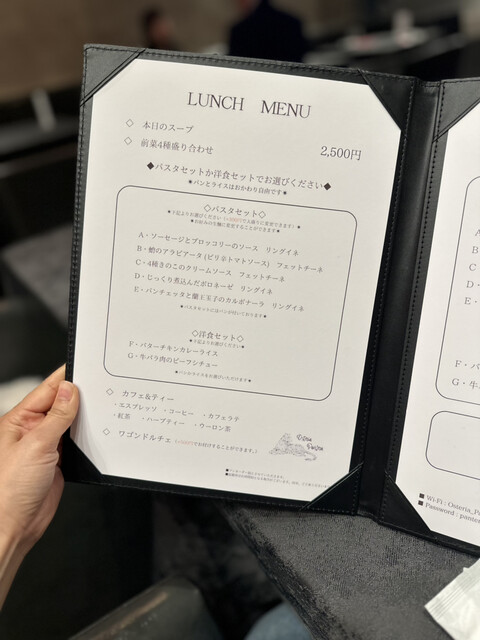 LUNCH MENU
◇ 本日のスープ
◇ 前菜4種盛り合わせ 2,500円
◆パスタセットか洋食セットでお選びください◆
★パンとライスはおかわり自由です★
◇パスタセット◇
A・ソーセージとブロッコリーのソース リングイネ
B・蛸のアラビアータ(ピリ辛トマトソース) フェットチーネ
C・4種きのこのクリームソース フェットチーネ
D・じっくり煮込んだボロネーゼ リングイネ
E・パンチェッタと蘭王玉子のカルボナーラ リングイネ
★パスタセットにはパンが付いております★
◇洋食セット◇
★上記よりお選びください★
F・バターチキンカレーライス
G・牛バラ肉のビーフシチュー
★パンorライスをお選びいただけます★
◇ カフェ&ティー
・エスプレッソ ・コーヒー ・カフェラテ
・紅茶 ・ハーブティー ・ウーロン茶
◇ ワゴンドルチェ
A
B
C
D
E
F・バ
G・牛
■ Wi-Fi : Osteria_Pa
■ Password : panter